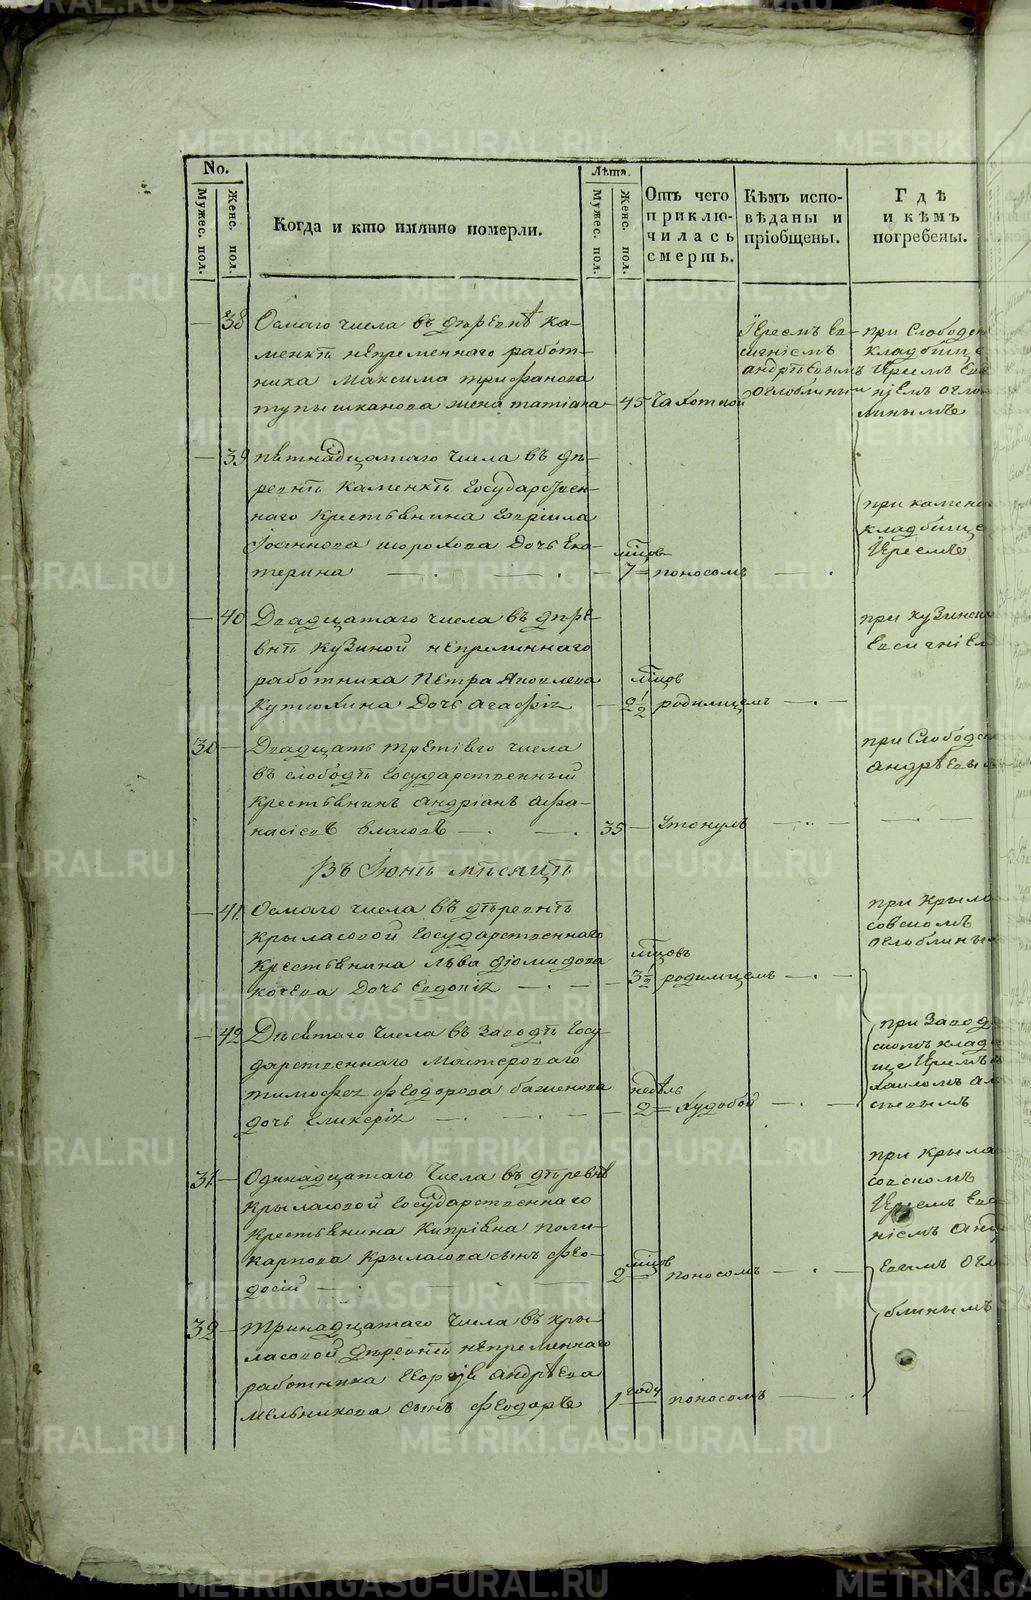 No.
Лѣта.
Мужес. пол.
Женс. пол.
Когда и кто имянно померли.
Мужес. пол.
Женс. пол.
Отъ чего
приклю-
чилась
смерть.
Кѣмъ испо-
вѣданы и
пріобщены.
Гдѣ
и кѣмъ
погребены.
— 38 Осмаго числа въ деревнѣ Ка-
менкѣ непременнаго работ-
ника Максима Трифанова
жена татіана — 45 Чахоткой
Іереемъ Ев-
сигніемъ
андрѣевымъ
Оглоблинымъ
при Слободс
кладбище
Іереемъ Евс
ніемъ огло
блинымъ
— 39 пѣтнадцатаго числа въ де-
ревнѣ Каменкѣ Государствен-
наго крестьянина Гавріила
Іоаннова шорохова дочь Ека-
терина — — мѣцовъ 7 = поносомъ —
при камен
кладбище
Іереемъ
— 40 Двадцатаго числа въ дере-
внѣ Кузиной непременнаго
работника Петра Яковлева
Кутюхина дочь агафія — мѣцовъ 2 1/2 родимцемъ —
при Кузинс
Евсигніем
30 — Двадцать третіяго числа
въ слободѣ Государственный
крестьянинъ андріанъ афа-
насіевъ власовъ — — 35 — Утонулъ —
при Слободс
андрѣевы
Въ Іюнѣ мѣсяцѣ
— 41 Осмаго числа въ деревнѣ
Крыласовой Государственнаго
крестьянина Льва діомидова
кочева дочь Евдокія — — мѣцовъ 3 1/2 родимцемъ —
при Крыла
совскомъ
оглоблины
— 42 Дѣсятаго числа въ Заводѣ Госу-
дарственнаго мастероваго
тимофея феодорова баженова
дочь Гликерія — недѣль 2 = Худобой —
при Завод
скомъ клад
ще Іереемъ
хаиломъ ал
31 — Одинадцатаго числа въ деревнѣ
Крыласовой Государственнаго
крестьянина Кипріяна поли-
карпова Крыласова сынъ Фео-
досій — мѣцов 2 — поносомъ —
при Крыла
совскомъ
Іереемъ Евс
ніемъ анд
32 — тринадцатаго числа въ кры-
ласовой деревнѣ непременнаго
работника Георгія андрѣева
мельникова сынъ Феодоръ 1 году поносомъ —
евымъ Огл
блинымъ
METRIKI.GASO-URAL.RU